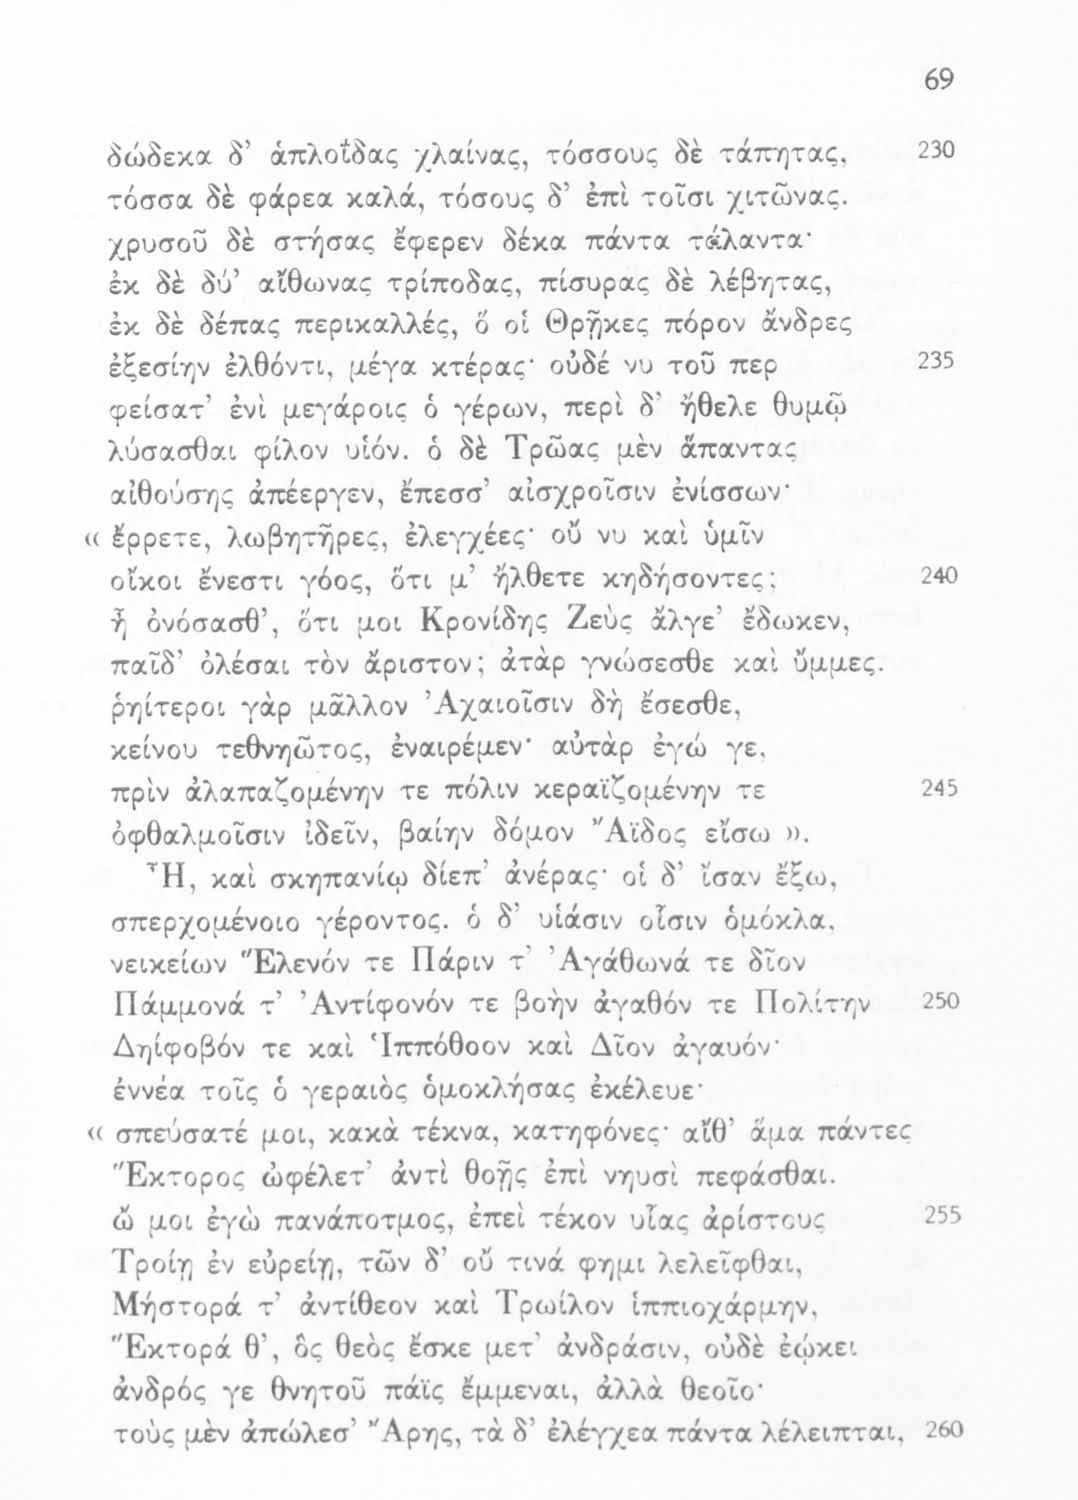 69
δώδεκα δ’ ἁπλοΐδας χλαίνας, τόσσους δὲ τάπητας, 230
τόσσα δὲ φάρεα καλά, τόσους δ’ ἐπὶ τοῖσι χιτῶνας.
χρυσοῦ δὲ στήσας ἔφερεν δέκα πάντα τάλαντα·
ἐκ δὲ δύ’ αἴθωνας τρίποδας, πίσυρας δὲ λέβητας,
ἐκ δὲ δέπας περικαλλές, ὅ οἱ Θρῇκες πόρον ἄνδρες
ἐξεσίην ἐλθόντι, μέγα κτέρας· οὐδέ νυ τοῦ περ 235
φείσατ’ ἐνὶ μεγάροις ὁ γέρων, περὶ δ’ ἤθελε θυμῷ
λύσασθαι φίλον υἱόν. ὁ δὲ Τρῶας μὲν ἅπαντας
αἰθούσης ἀπέεργεν, ἔπεσσ’ αἰσχροῖσιν ἐνίσσων·
« ἔρρετε, λωβητῆρες, ἐλεγχέες· οὔ νυ καὶ ὑμῖν
οἴκοι ἔνεστι γόος, ὅτι μ’ ἤλθετε κηδήσοντες; 240
ἦ ὀνόσασθ’, ὅτι μοι Κρονίδης Ζεὺς ἄλγε’ ἔδωκεν,
παῖδ’ ὀλέσαι τὸν ἄριστον; ἀτὰρ γνώσεσθε καὶ ὔμμες.
ῥηίτεροι γὰρ μᾶλλον Ἀχαιοῖσιν δὴ ἔσεσθε,
κείνου τεθνηῶτος, ἐναιρέμεν· αὐτὰρ ἐγώ γε,
πρὶν ἀλαπαζομένην τε πόλιν κεραϊζομένην τε 245
ὀφθαλμοῖσιν ἰδεῖν, βαίην δόμον Ἄϊδος εἴσω ».
Ἦ, καὶ σκηπανίῳ δίεπ’ ἀνέρας· οἱ δ’ ἴσαν ἔξω,
σπερχομένοιο γέροντος. ὁ δ’ υἱάσιν οἷσιν ὁμόκλα,
νεικείων Ἕλενόν τε Πάριν τ’ Ἀγάθωνά τε δῖον
Πάμμονά τ’ Ἀντίφονόν τε βοὴν ἀγαθόν τε Πολίτην 250
Δηίφοβόν τε καὶ Ἱππόθοον καὶ Δῖον ἀγαυόν·
ἐννέα τοῖς ὁ γεραιὸς ὁμοκλήσας ἐκέλευε·
« σπεύσατέ μοι, κακὰ τέκνα, κατηφόνες· αἴθ’ ἅμα πάντες
Ἕκτορος ὠφέλετ’ ἀντὶ θοῇς ἐπὶ νηυσὶ πεφάσθαι.
ὤ μοι ἐγὼ πανάποτμος, ἐπεὶ τέκον υἷας ἀρίστους 255
Τροίῃ ἐν εὐρείῃ, τῶν δ’ οὔ τινά φημι λελεῖφθαι,
Μήστορά τ’ ἀντίθεον καὶ Τρωίλον ἱππιοχάρμην,
Ἕκτορά θ’, ὃς θεὸς ἔσκε μετ’ ἀνδράσιν, οὐδὲ ἐῴκει
ἀνδρός γε θνητοῦ πάϊς ἔμμεναι, ἀλλὰ θεοῖο·
τοὺς μὲν ἀπώλεσ’ Ἄρης, τὰ δ’ ἐλέγχεα πάντα λέλειπται, 260